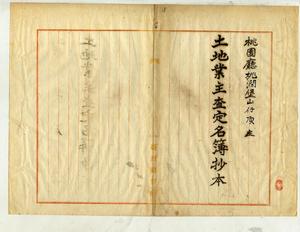 桃園廳桃澗堡山仔頂庄
土地業主査定名簿抄本